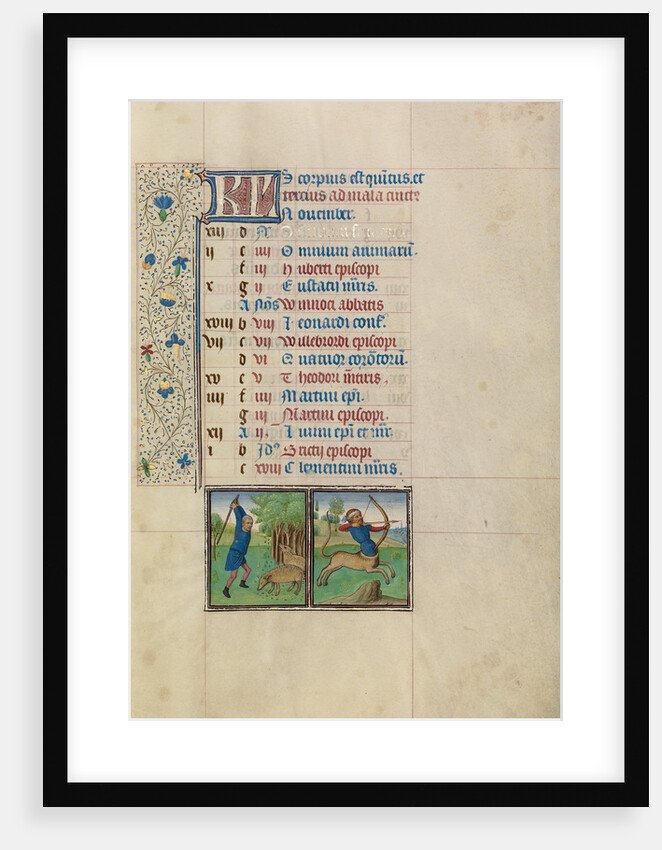 KL Scorpius est quītus. et
tercius ad mala cīcte
Nouember.
xiij d N
ij e iiij Omnium animarū.
f iij Huberti episcopi
x g ij Eustacij mr̄is.
A Noń Winnoci abbatis
xviij b viij Leonardi conf̄.
vij c vij Willebrordi episcopi
d vi Quatuor corōtorū.
xv e v Theodori m̄tiris.
iiij f iiij Martini ep̄i.
g iij Martini episcopi.
xij A ij. Liuini ep̄i et mr̄.
i b Jd᷒ Brictij episcopi
c xviij Clementini mr̄is.